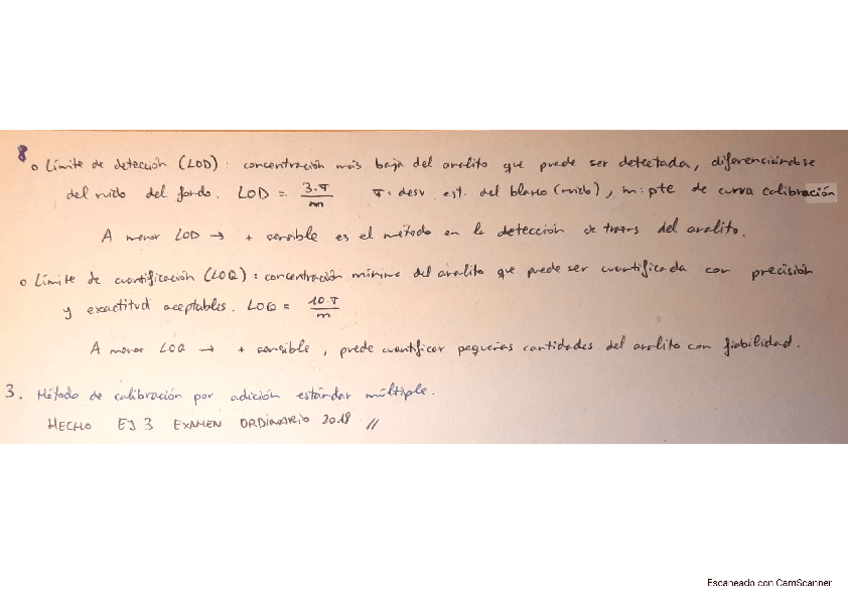 8
o Límite de detección (LOD) : concentración más baja del analito que puede ser detectada, diferenciándose
del ruido del fondo. LOD = 3·σ/m σ: desv. est. del blanco (ruido), m: pte de curva calibración
A menor LOD → + sensible es el método en la detección de trazas del analito.
o Límite de cuantificación (LOQ) : concentración mínima del analito que puede ser cuantificada con precisión
y exactitud aceptables. LOQ = 10·σ/m
A menor LOQ → + sensible, puede cuantificar pequeñas cantidades del analito con fiabilidad.
3. Método de calibración por adición estándar múltiple.
HECHO EJ 3 EXAMEN ORDINARIO 2018 //
Escaneado con CamScanner